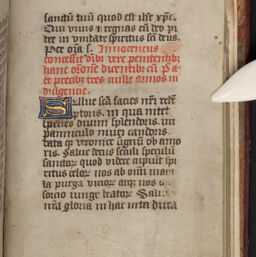 sanctū tuū quod est ihs xp̄c.
Qui vivis & regnas cū deo pa
tre in unitate spiritus scī deus.
Per oīa s. Innocencius
concessit oīb; vere penitentib;
hanc orōne dicentib; cū Pa
et precib; tres mille annos in
dulgencie.
Salve scā facies nrī redē
ptoris. in qua nitet
species divini splendoris. im
panniculo nivei candoris.
data q; veronice signū ob amo
ris. Salve decus seculi speculū
sanctor; quod videre cupiūt spi
ritus celor; nos ab omī macu
la purga vicior; atq; nos
sorcio iunge beator; Salve
nrā gloria in hac vita dura